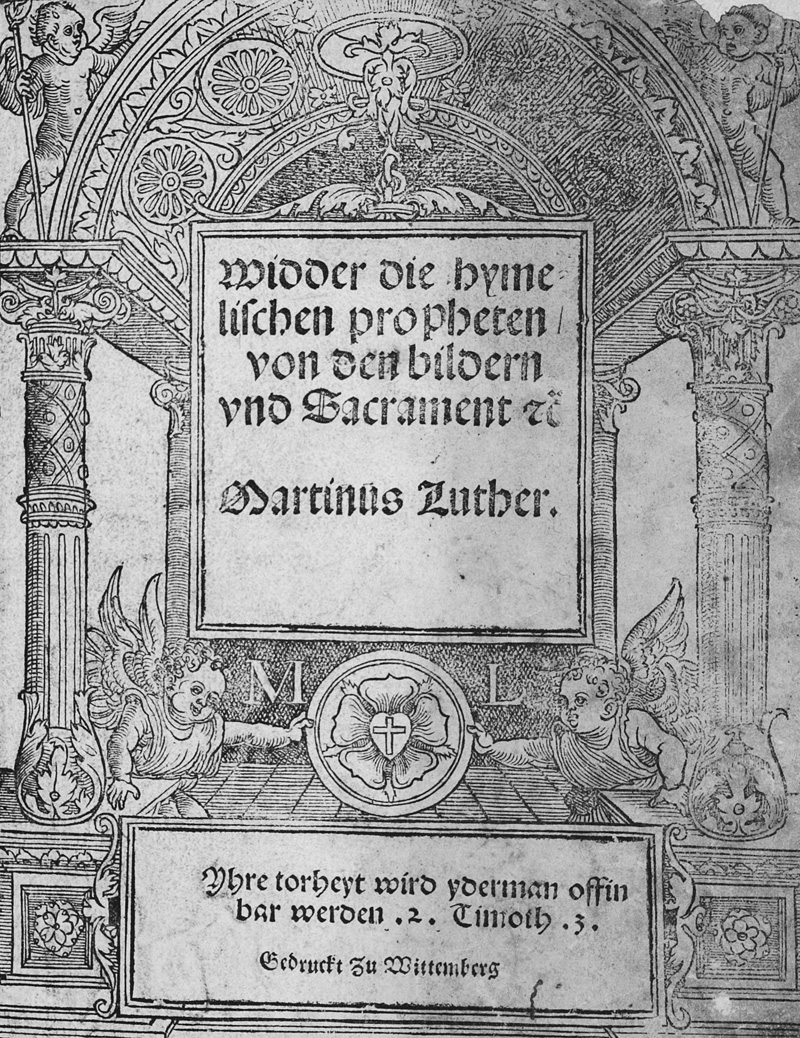 Widder die hyme⸗
lischen propheten /
von den bildern
vnd Sacrament ꝛc̃
Martinus Luther.
M L
Yhre torheyt wird yderman offin
bar werden .2. Timoth .3.
Gedruckt Zu Wittemberg